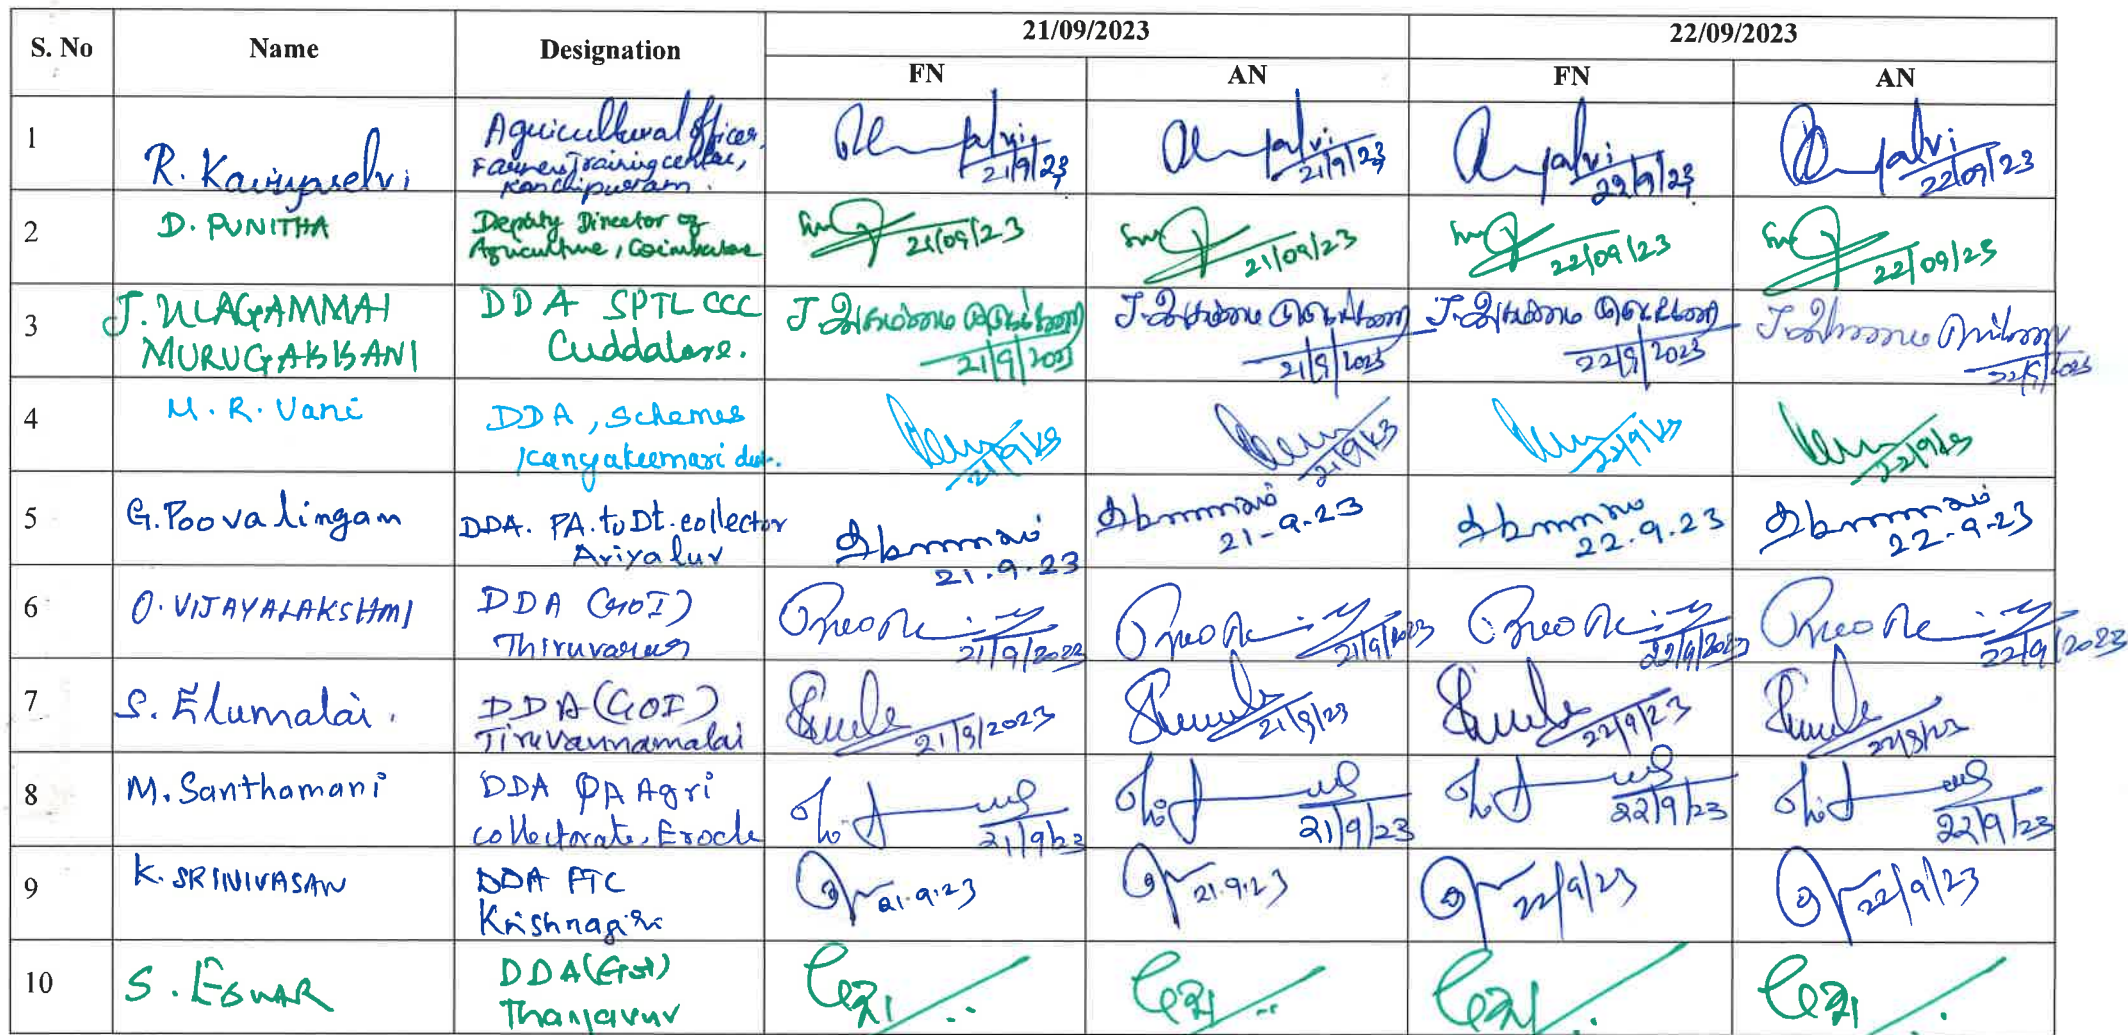 S. No Name Designation 21/09/2023 22/09/2023
FN AN FN AN
1 R. Kaviyaselvi Agricultural Officer,
Farmers Training center,
Kanchipuram.
21/9/23 21/9/23 22/9/23 22/09/23
2 D. PUNITHA Deputy Director of
Agriculture, Coimbatore
21/09/23 21/09/23 22/09/23 22/09/23
3 J. ULAGAMMAI DDA SPTL CCC
MURUGAKKANI Cuddalore.
21/9/2023 21/9/2023 22/9/2023 22/9/2023
4 M. R. Vani DDA, Schemes
Kanyakumari dist.
21/9/23 21/9/23 22/9/23 22/9/23
5 G. Poovalingam DDA. PA. to Dt. collector
Ariyalur
21.9.23 21-9-23 22.9.23 22-9-23
6 O. VIJAYALAKSHMI DDA (GOI)
Thiruvarur
21/9/2023 21/9/2023 22/9/2023 22/9/2023
7 S. Elumalai. DDA (GOI)
Tiruvannamalai
21/9/2023 21/9/23 22/9/23 22/9/23
8 M. Santhamani DDA PA Agri
collectorate, Erode
21/9/23 21/9/23 22/9/23 22/9/23
9 K. SRINIVASAN DDA FTC
Krishnagiri
21.9.23 21.9.23 22/9/23 22/9/23
10 S. ESWAR DDA (GOI)
Thanjavur